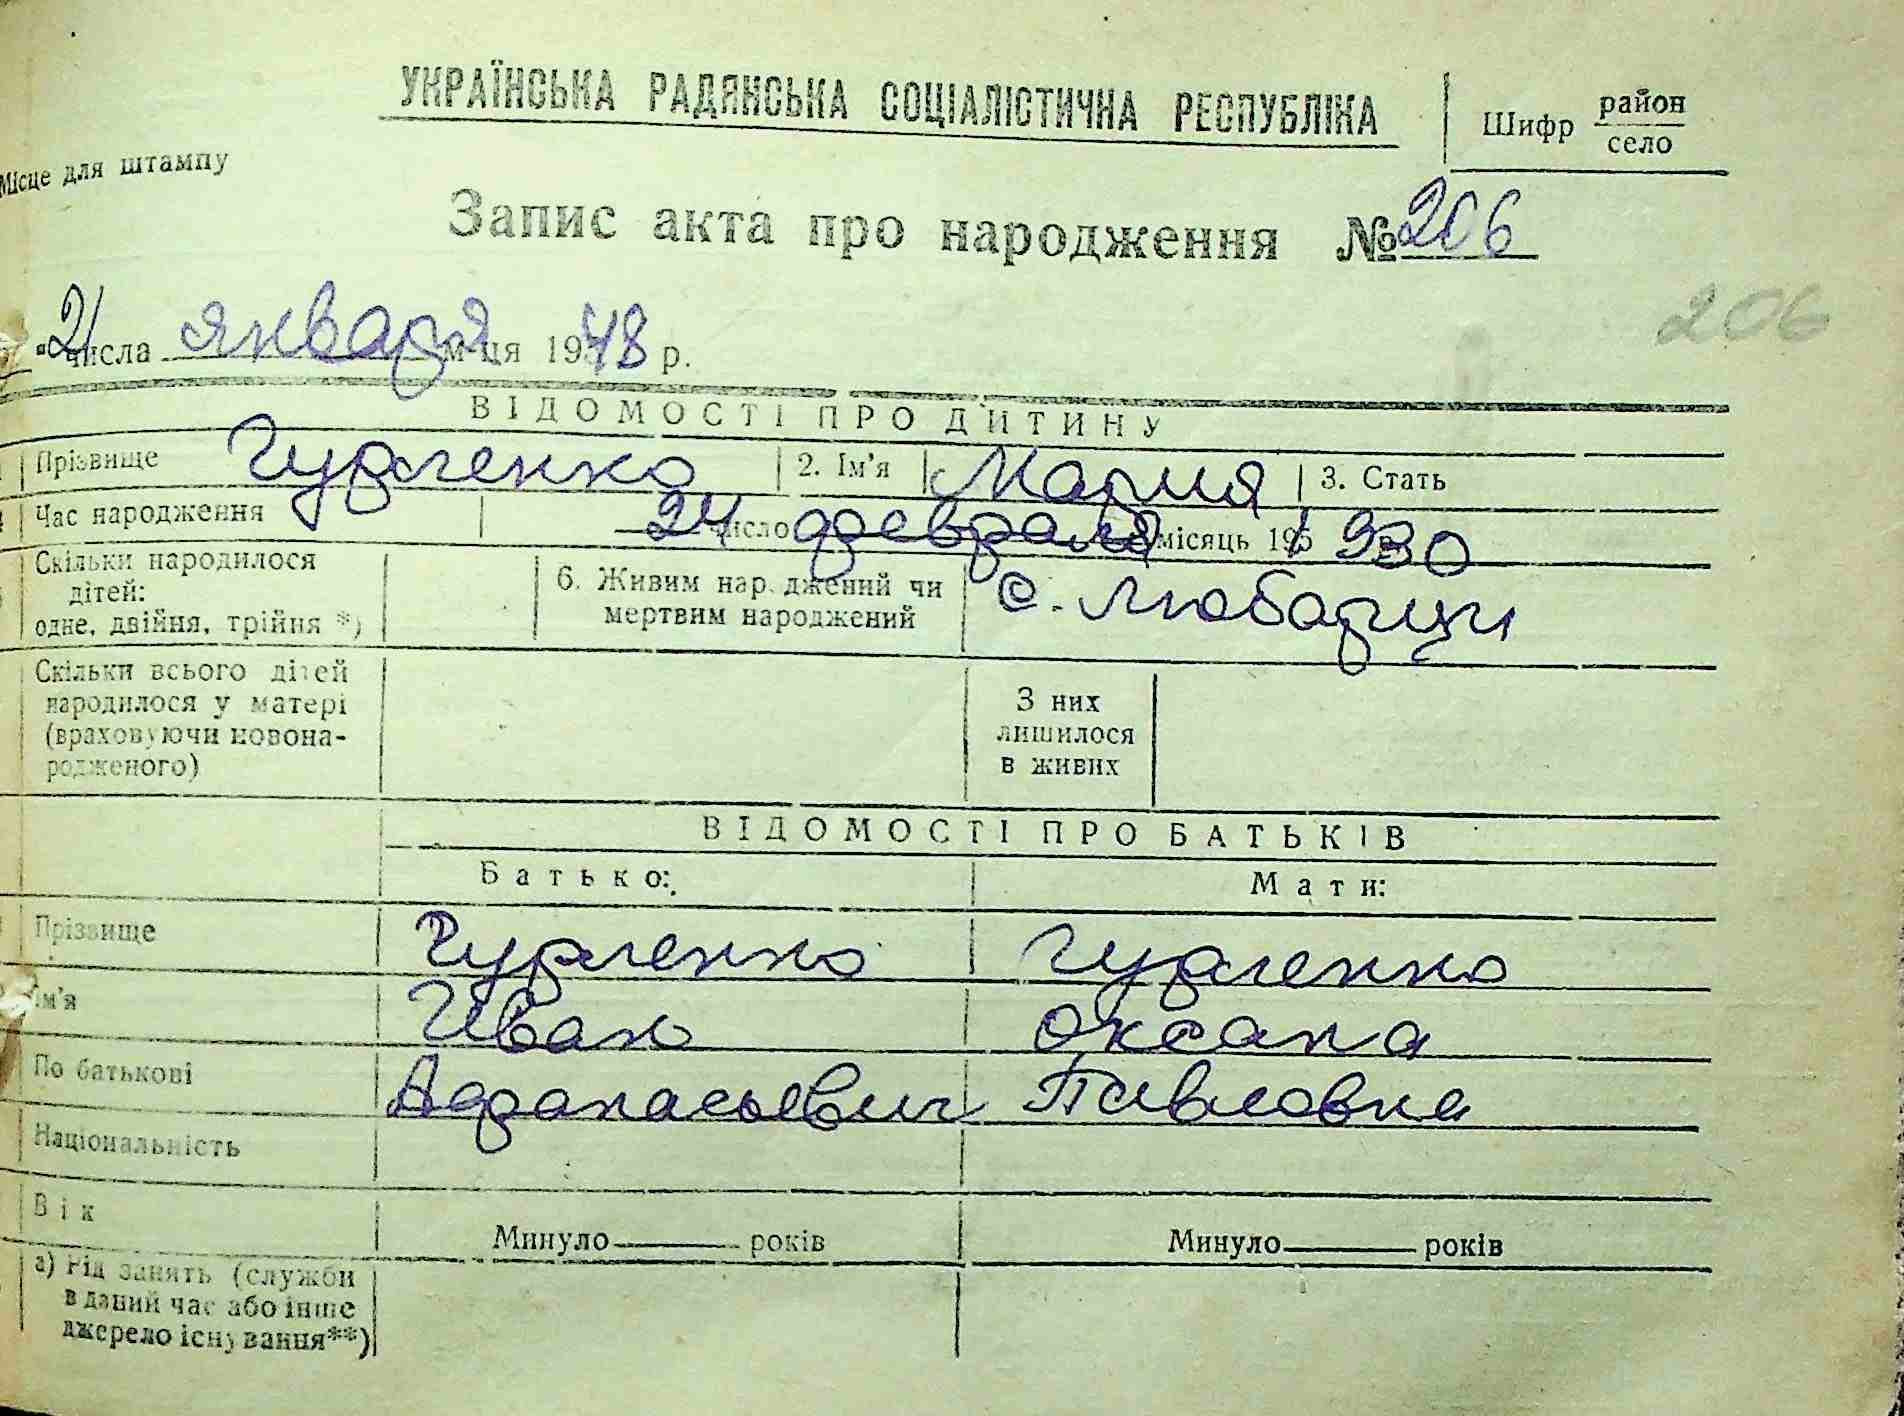 УКРАЇНСЬКА РАДЯНСЬКА СОЦІАЛІСТИЧНА РЕСПУБЛІКА
Шифр район
село
Місце для штампу
Запис акта про народження № 206
206
"21 числа января м-ця 1948 р.
ВІДОМОСТІ ПРО ДИТИНУ
Прізвище Гурленко 2. Ім'я Мария 3. Стать
Час народження 24 число февраля місяць 195 1930
Скільки народилося дітей: одне, двійня, трійня *)
6. Живим народжений чи мертвим народжений с. Любарци
Скільки всього дітей народилося у матері (враховуючи новонародженого)
З них лишилося в живих
ВІДОМОСТІ ПРО БАТЬКІВ
Батько: Мати:
Прізвище Гурленко Гурленко
Ім'я Иван Оксана
По батькові Афанасьевич Павловна
Національність
Вік Минуло ______ років Минуло ______ років
а) Рід занять (служби в даний час або інше джерело існування**)